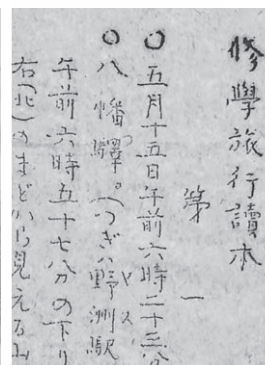 修學旅行讀本
第一
〇五月十五日午前六時二十三分
〇八幡驛。(つぎハ野洲駅
ヤス
午前六時五十七八分の下り
右(北)のまどから見える山